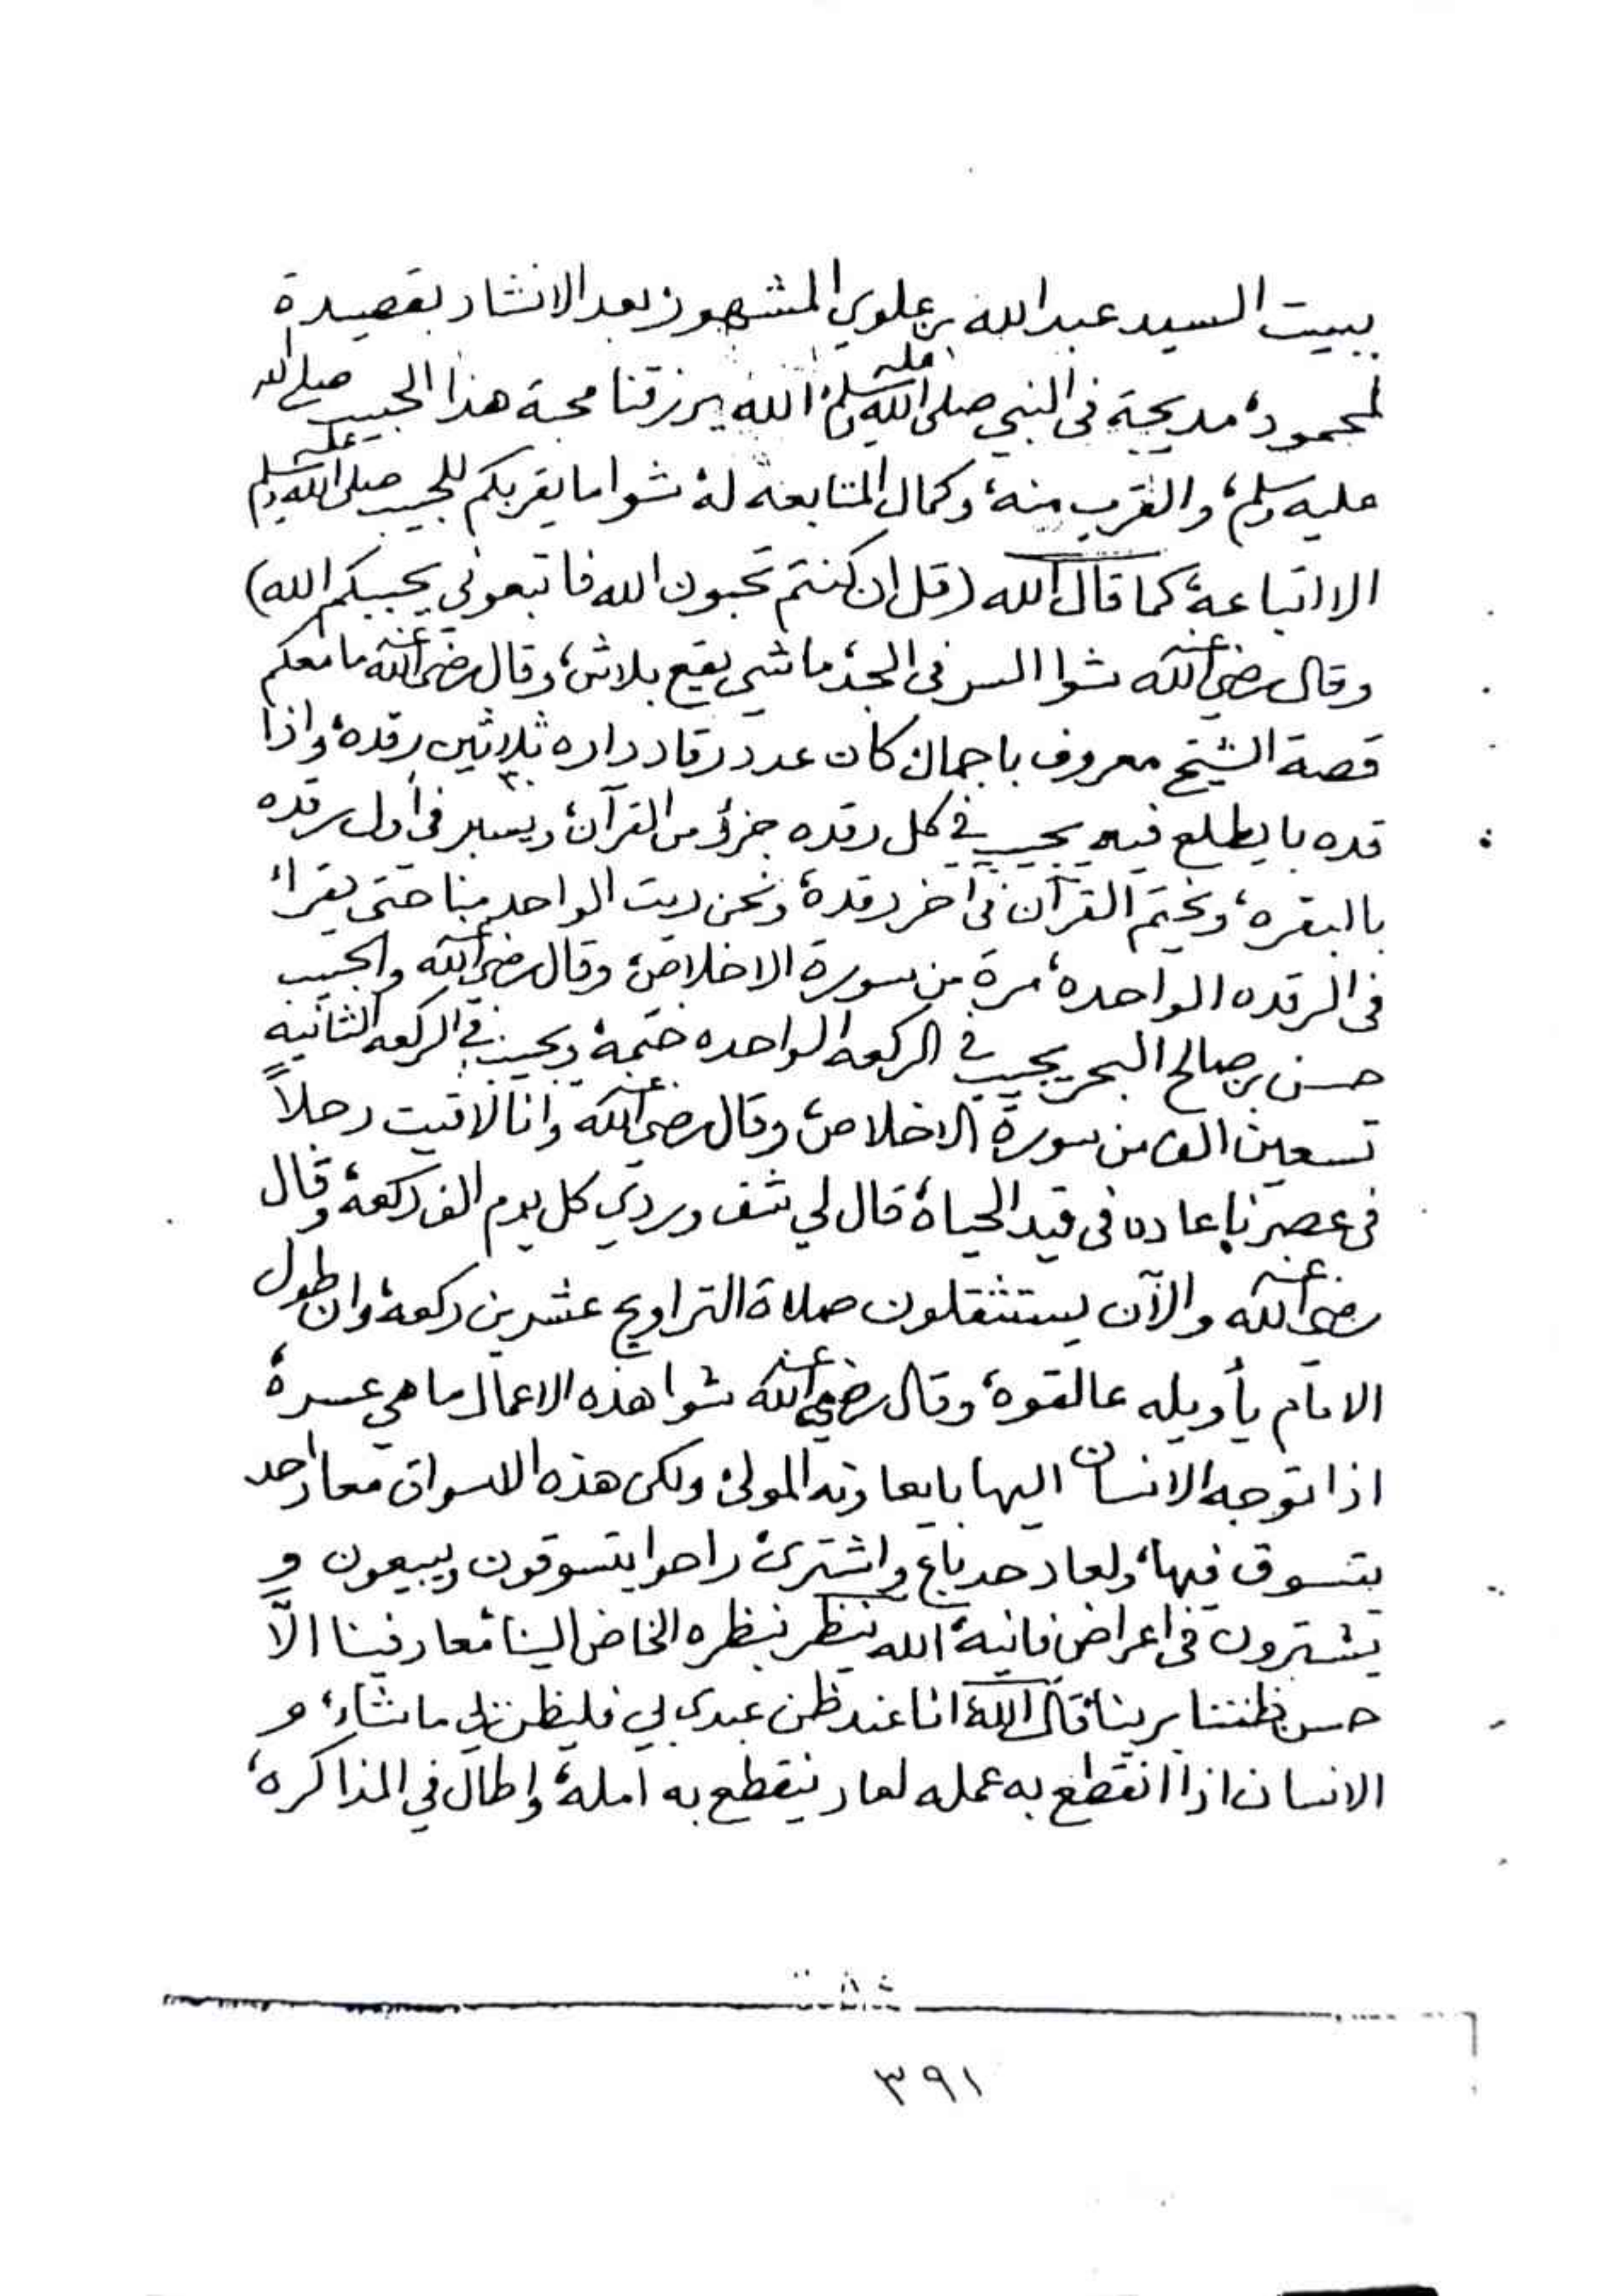 ببيت السيد عبدالله بن علوي المشهور بعد الانشاد بقصيدة
لمحمود، مديحية في النبي صلى الله عليه وسلم، الله يرزقنا محبة هذا الحبيب صلى الله
عليه وسلم، والقرب منه، وكمال المتابعه له، شوا ما يقربكم للحبيب صلى الله عليه وسلم
الا اتباعه، كما قال الله (قل ان كنتم تحبون الله فاتبعوني يحببكم الله)
وقال رضي الله عنه شوا السر في الجد، ما شي يقع بلاش، وقال رضي الله عنه ما معكم
قصة الشيخ معروف باجمال كان عدد رقاد داره ثلاثين ٣٠ رقده، واذا
قده با يطلع فيه يجيب في كل رقده جزؤ من القرآن، ويسير في أول رقده
بالبقره، ويختم القرآن في آخر رقدة، ونحن ريت الواحد منا حتى يقراء
في الرقده الواحده، مرة من سورة الاخلاص، وقال رضي الله عنه والحبيب
حسن بن صالح البحر يجيب في الركعه الواحده ختمة، ويجيب في الركعه الثانيه
تسعين الف من سورة الاخلاص، وقال رضي الله عنه وانا لاقيت رجلاً
في عصرنا عاده في قيد الحياة، قال لي شف وردي كل يوم الف ركعة، وقال
رضي الله عنه والآن يستثقلون صلاة التراويح عشرين ركعة، وان طول
الامام يأويله عالقوة، وقال رضي الله عنه شوا هذه الاعمال ما هي عسرة،
اذا توجه الانسان اليها با يعاونه المولى، ولكن هذه الاسواق معاد احد
يتسوق فيها، ولعاد حد باع واشترى، راحوا يتسوقون ويبيعون و
يشترون في اعراض فانية، الله ينظر بنظره الخاص الينا، معاد فينا الّا
حسن ظننا بربنا، قال الله، انا عند ظن عبدي بي فليظن بي ما شاء، و
الانسان اذا انقطع به عمله لعاد ينقطع به امله، واطال في المذاكره،
٣٩١